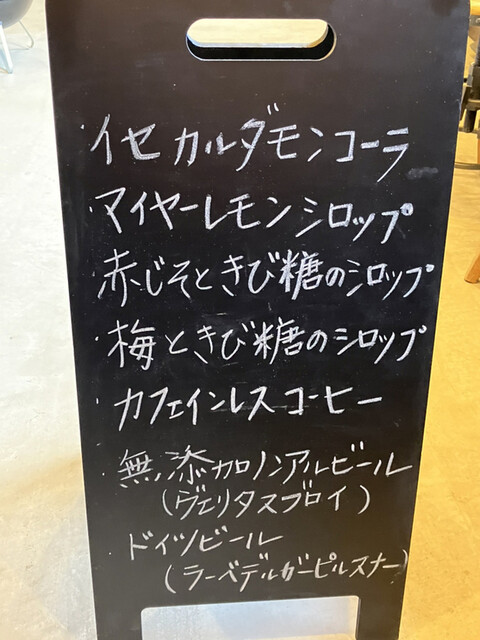 ・イセカルダモンコーラ
・マイヤーレモンシロップ
・赤じそときび糖のシロップ
・梅ときび糖のシロップ
・カフェインレスコーヒー
・無添加ノンアルビール
(ヴェリタスブロイ)
・ドイツビール
(ラーベデルガーピルスナー)